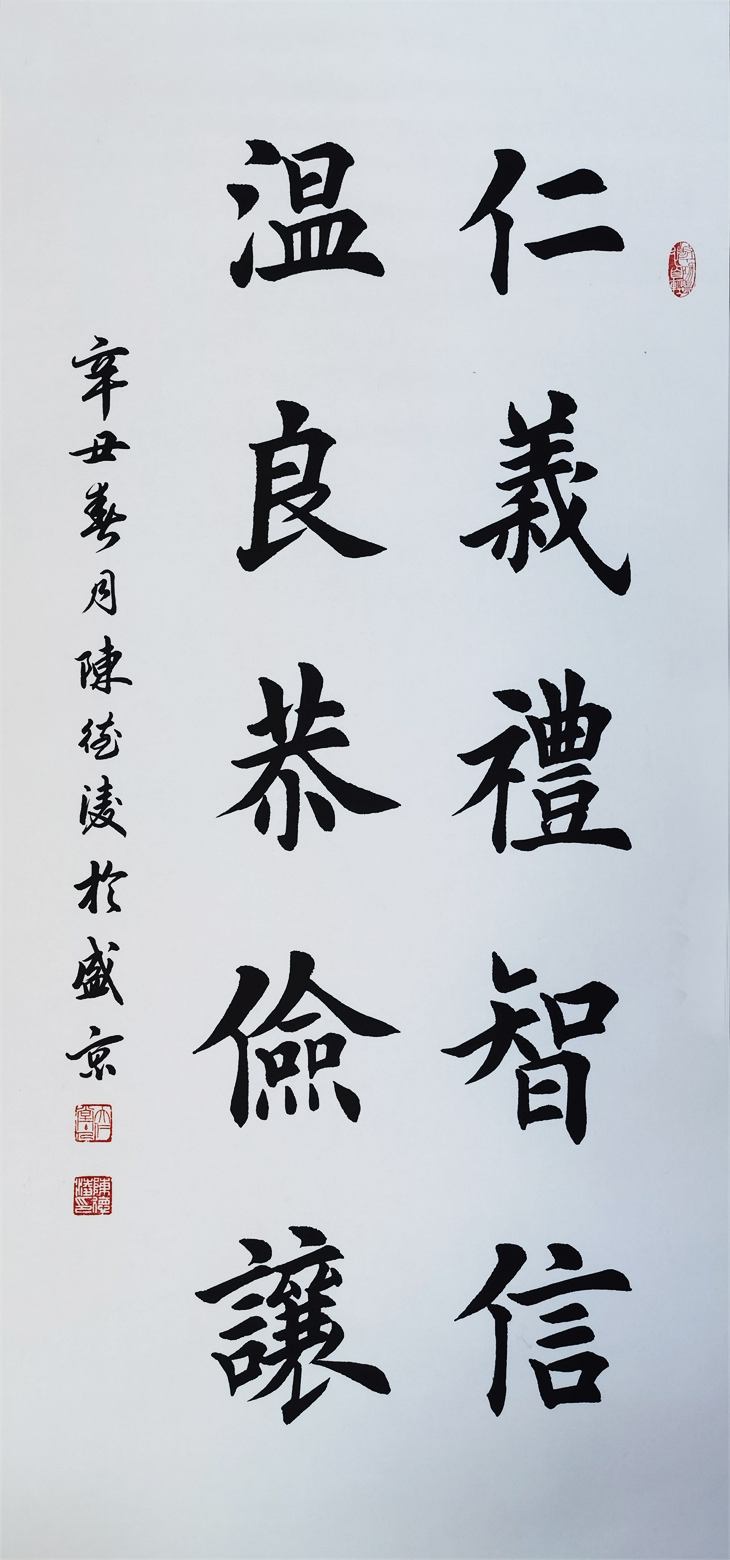 仁義禮智信
温良恭儉讓
辛丑春月陳德凌於盛京